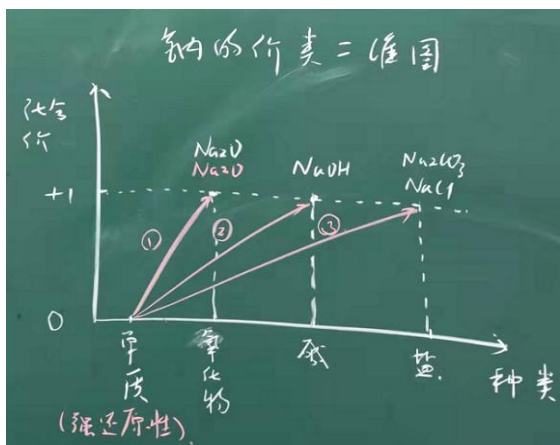 钠的价类二维图
化合价
Na2O
Na2O
NaOH
Na2CO3
NaCl
+1
①
②
③
0
单质
氧化物
碱
盐
种类
(强还原性)